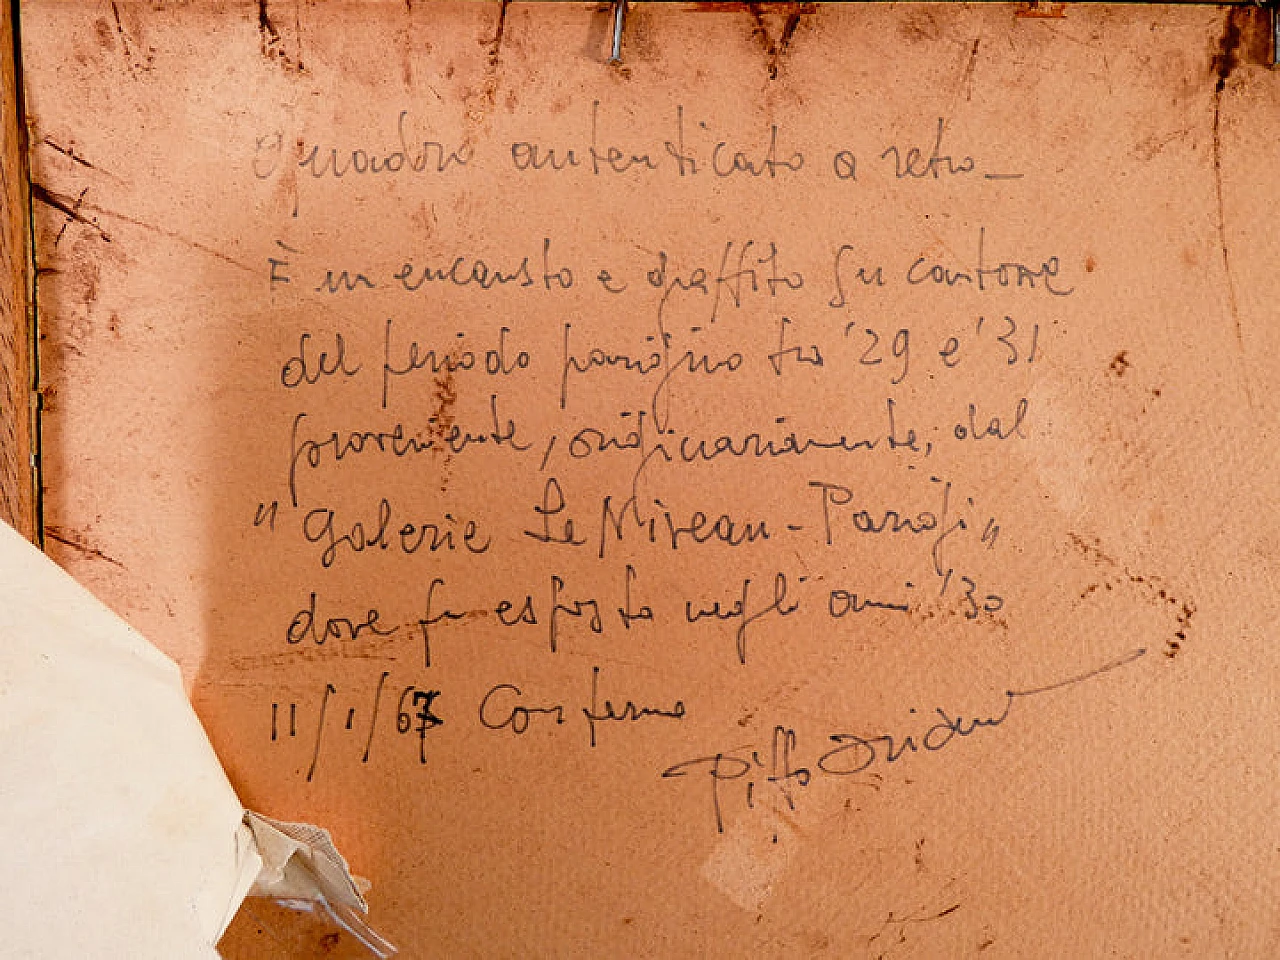 Quadro autenticato a retro_
È un encausto e graffito su cartone
del periodo parigino tra '29 e '31
proveniente, originariamente, dal
"Galerie Le Niveau - Parigi"
dove fu esposto negli anni '30
11/1/67 Conferma